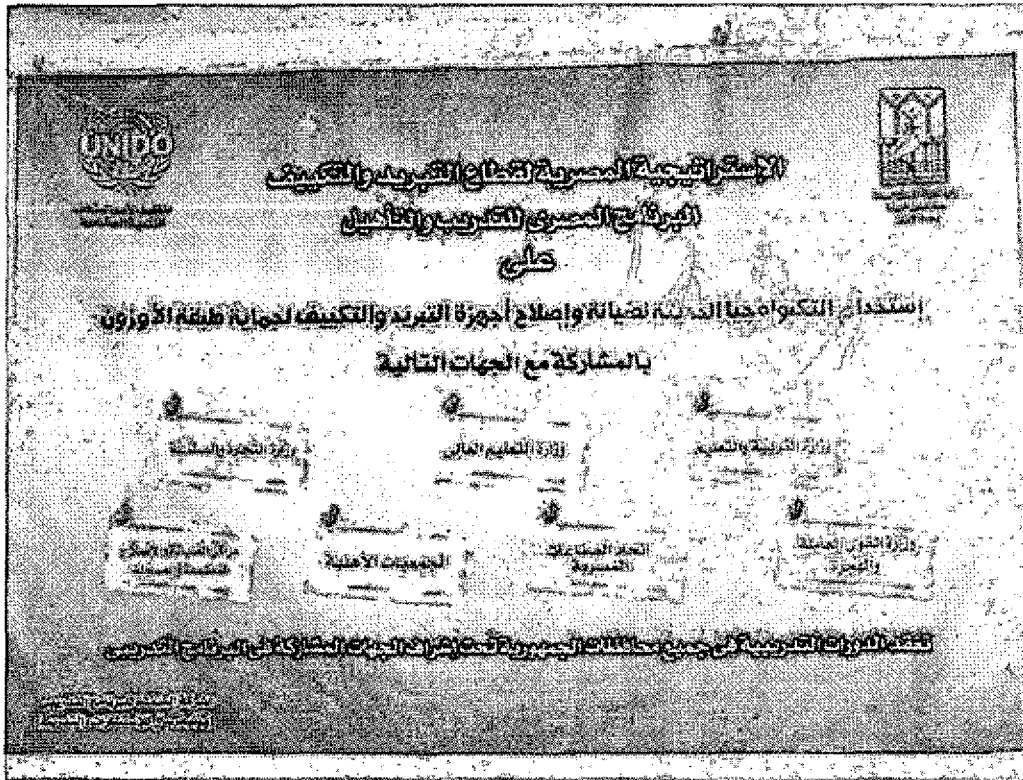 UNIDO
الإستراتيجية المصرية لقطاع التبريد والتكييف
البرنامج المصرى للتدريب والتأهيل
على
إستخدام التكنولوجيا الحديثة لصيانة وإصلاح أجهزة التبريد والتكييف لحماية طبقة الأوزون
بالمشاركة مع الجهات التالية
وزارة التربية والتعليم
وزارة التعليم العالى
وزارة التجارة والصناعة
وزارة القوى العاملة
والهجرة
اتحاد الصناعات
المصرية
الجمعيات الأهلية
تعقد الدورات التدريبية فى جميع محافظات الجمهورية تحت إشراف الجهات المشاركة فى البرنامج التدريبى